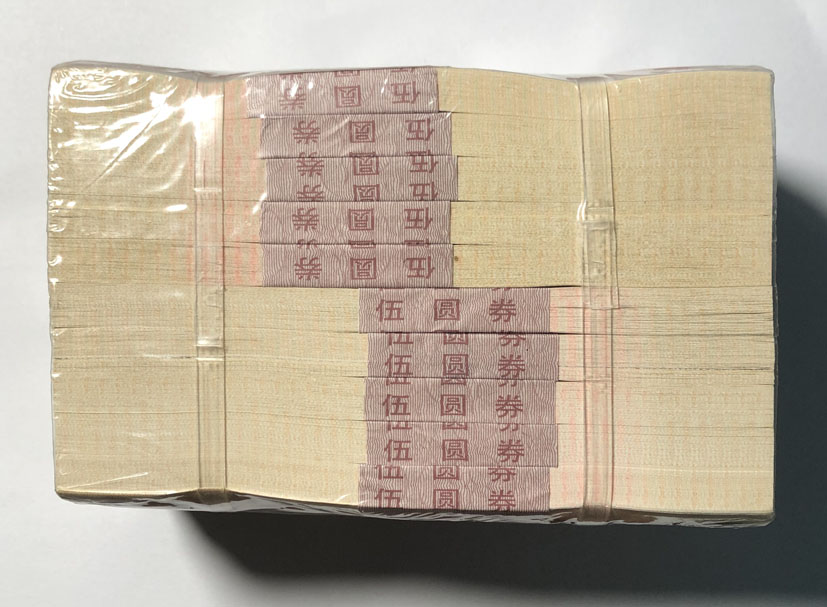 伍 圆 券
伍 圆 券
伍 圆 券
伍 圆 券
伍 圆 券
伍 圆 券
伍 圆 券
伍 圆 券
伍 圆 券
伍 圆 券